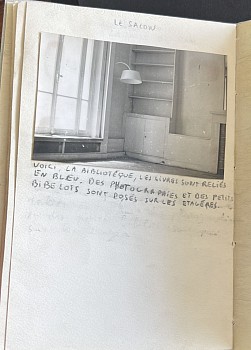 LE SALON
VOICI, LA BIBLIOTÈQUE, LES LIVRES SONT RELIÉS
EN BLEU. DES PHOTOGRAPHIES ET DES PETITS
BIBELOTS SONT POSÉS SUR LES ETAGÈRES.